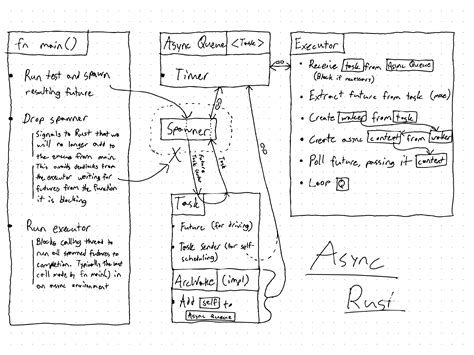 fn main()
• Run test and spawn
resulting future
• Drop spawner
Signals to Rust that we
will no longer add to
the executor from main.
This avoids deadlocks from
the executor waiting for
futures from the function
it is blocking
• Run executor
Blocks calling thread to
run all spawned futures to
completion. Typically the last
call made by fn main() in
an async environment
Async Queue <Task>
• Timer
Spawner
X
Future
Task Sender
Task
Task
• Future (for driving)
• Task Sender (for self-
scheduling)
ArcWake (impl)
• Add self to
Async Queue
Executor
• Receive task from Async Queue
(Block if necessary)
• Extract future from task
• Create waker from task
• Create async context from waker
• Poll future, passing it context
• Loop
Async
Rust